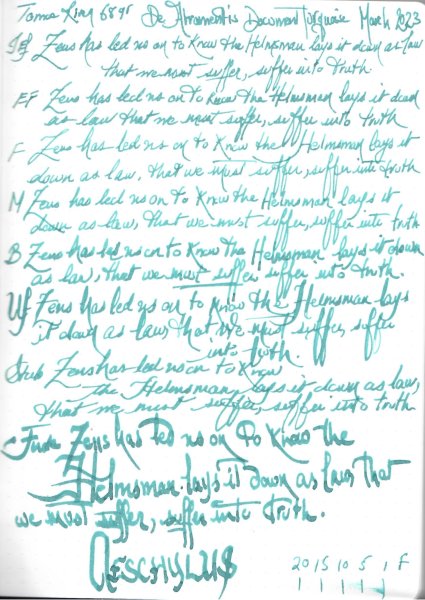 Tomoe River 68 gr De Atramentis Document Turquoise March 2023
EEF Zeus has led us on to know the Helmsman lays it down as law
that we must suffer, suffer into truth.
EF Zeus has led us on to know the Helmsman lays it down
as law that we must suffer, suffer into truth
F Zeus has led us on to know the Helmsman lays it
down as law, that we must suffer, suffer into truth
M Zeus has led us on to know the Helmsman lays it
down as law, that we must suffer, suffer into truth
B Zeus has led us on to know the Helmsman lays it down
as law, that we must suffer, suffer into truth.
Zeus has led us on to know the Helmsman lays
it down as law, that we must suffer, suffer
into truth.
Stub Zeus has led us on to know
the Helmsman, lays it down as law,
that we must suffer, suffer into truth
Fude Zeus has led us on to know the
Helmsman lays it down as law that
we must suffer, suffer into truth.
AESCHYLUS
20 15 10 5 1 F